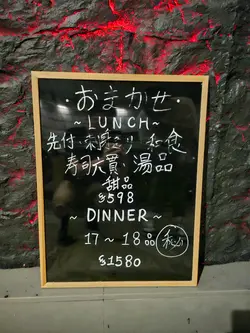 · おまかせ ·
~ LUNCH ~
先付·刺身·和食
寿司·湯品
甜品
$598
~ DINNER ~
17~18品
$1580